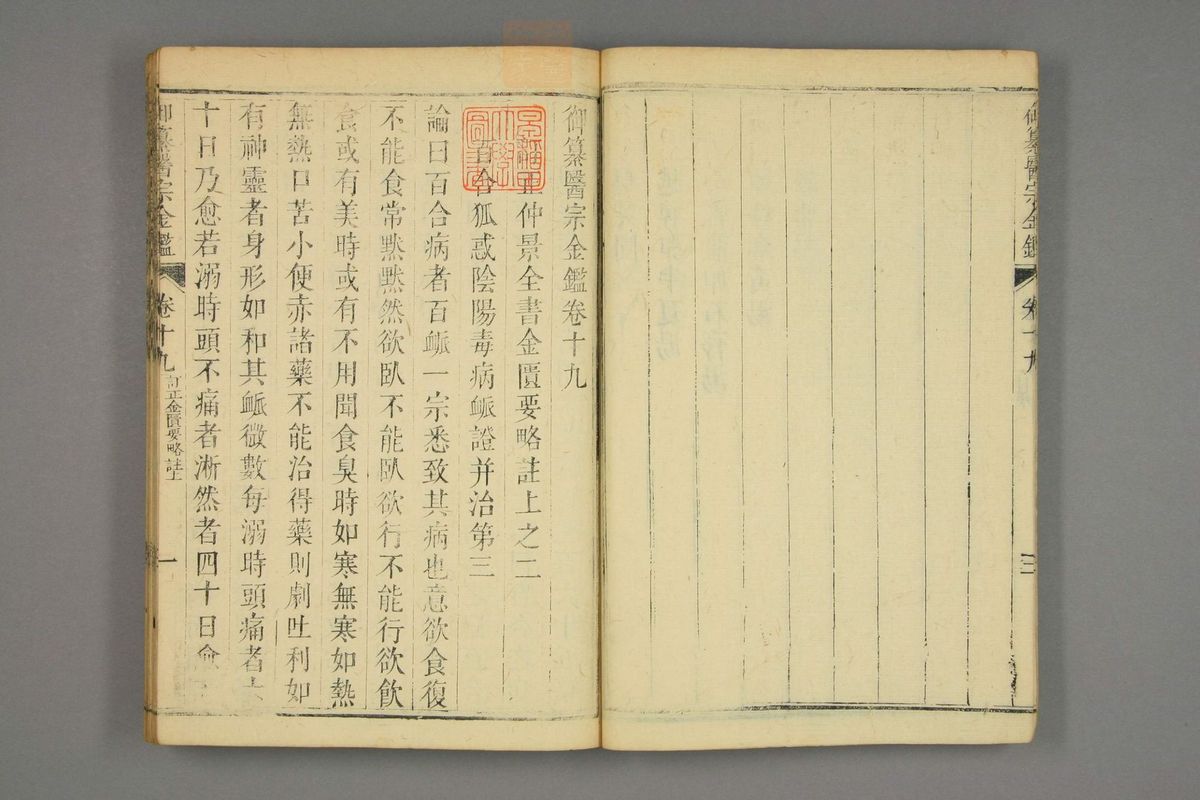 御纂醫宗金鑑
卷十九
三
御纂醫宗金鑑卷十九
訂正仲景全書金匱要略註上之二
百合狐惑陰陽毒病脈證并治第三
論曰百合病者百脈一宗悉致其病也意欲食復
不能食常默默然欲臥不能臥欲行不能行欲飲
食或有美時或有不用聞食臭時如寒無寒如熱
無熱口苦小便赤諸藥不能治得藥則劇吐利如
有神靈者身形如和其脈微數每溺時頭痛者六
十日乃愈若溺時頭不痛者淅然者四十日愈
御纂醫宗金鑑
卷十九
訂正金匱要略註上
一